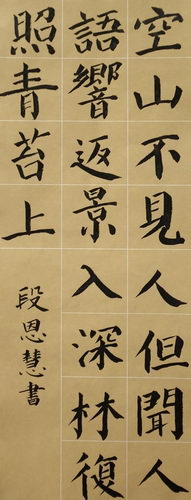 空山不見人但聞人
語響返景入深林復
照青苔上
段恩慧書